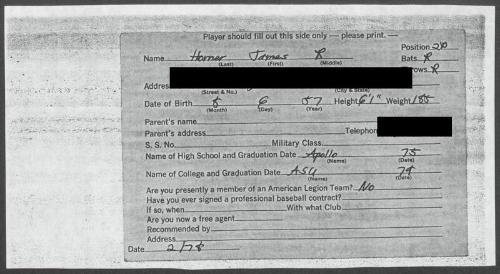 Player should fill out this side only — please print. —
Position 2B
Name Horner James R Bats R
(Last) (First) (Middle)
rows R
Address
(Street & No.) (City & State)
Date of Birth 8 6 57 Height 6'1" Weight 185
(Month) (Day) (Year)
Parent's name
Parent's address Telephon
S. S. No. Military Class
Name of High School and Graduation Date Apollo 75
(Name) (Date)
Name of College and Graduation Date ASU 79
(Name) (Date)
Are you presently a member of an American Legion Team? No
Have you ever signed a professional baseball contract?
If so, when With what Club
Are you now a free agent
Recommended by
Address
Date 2/78